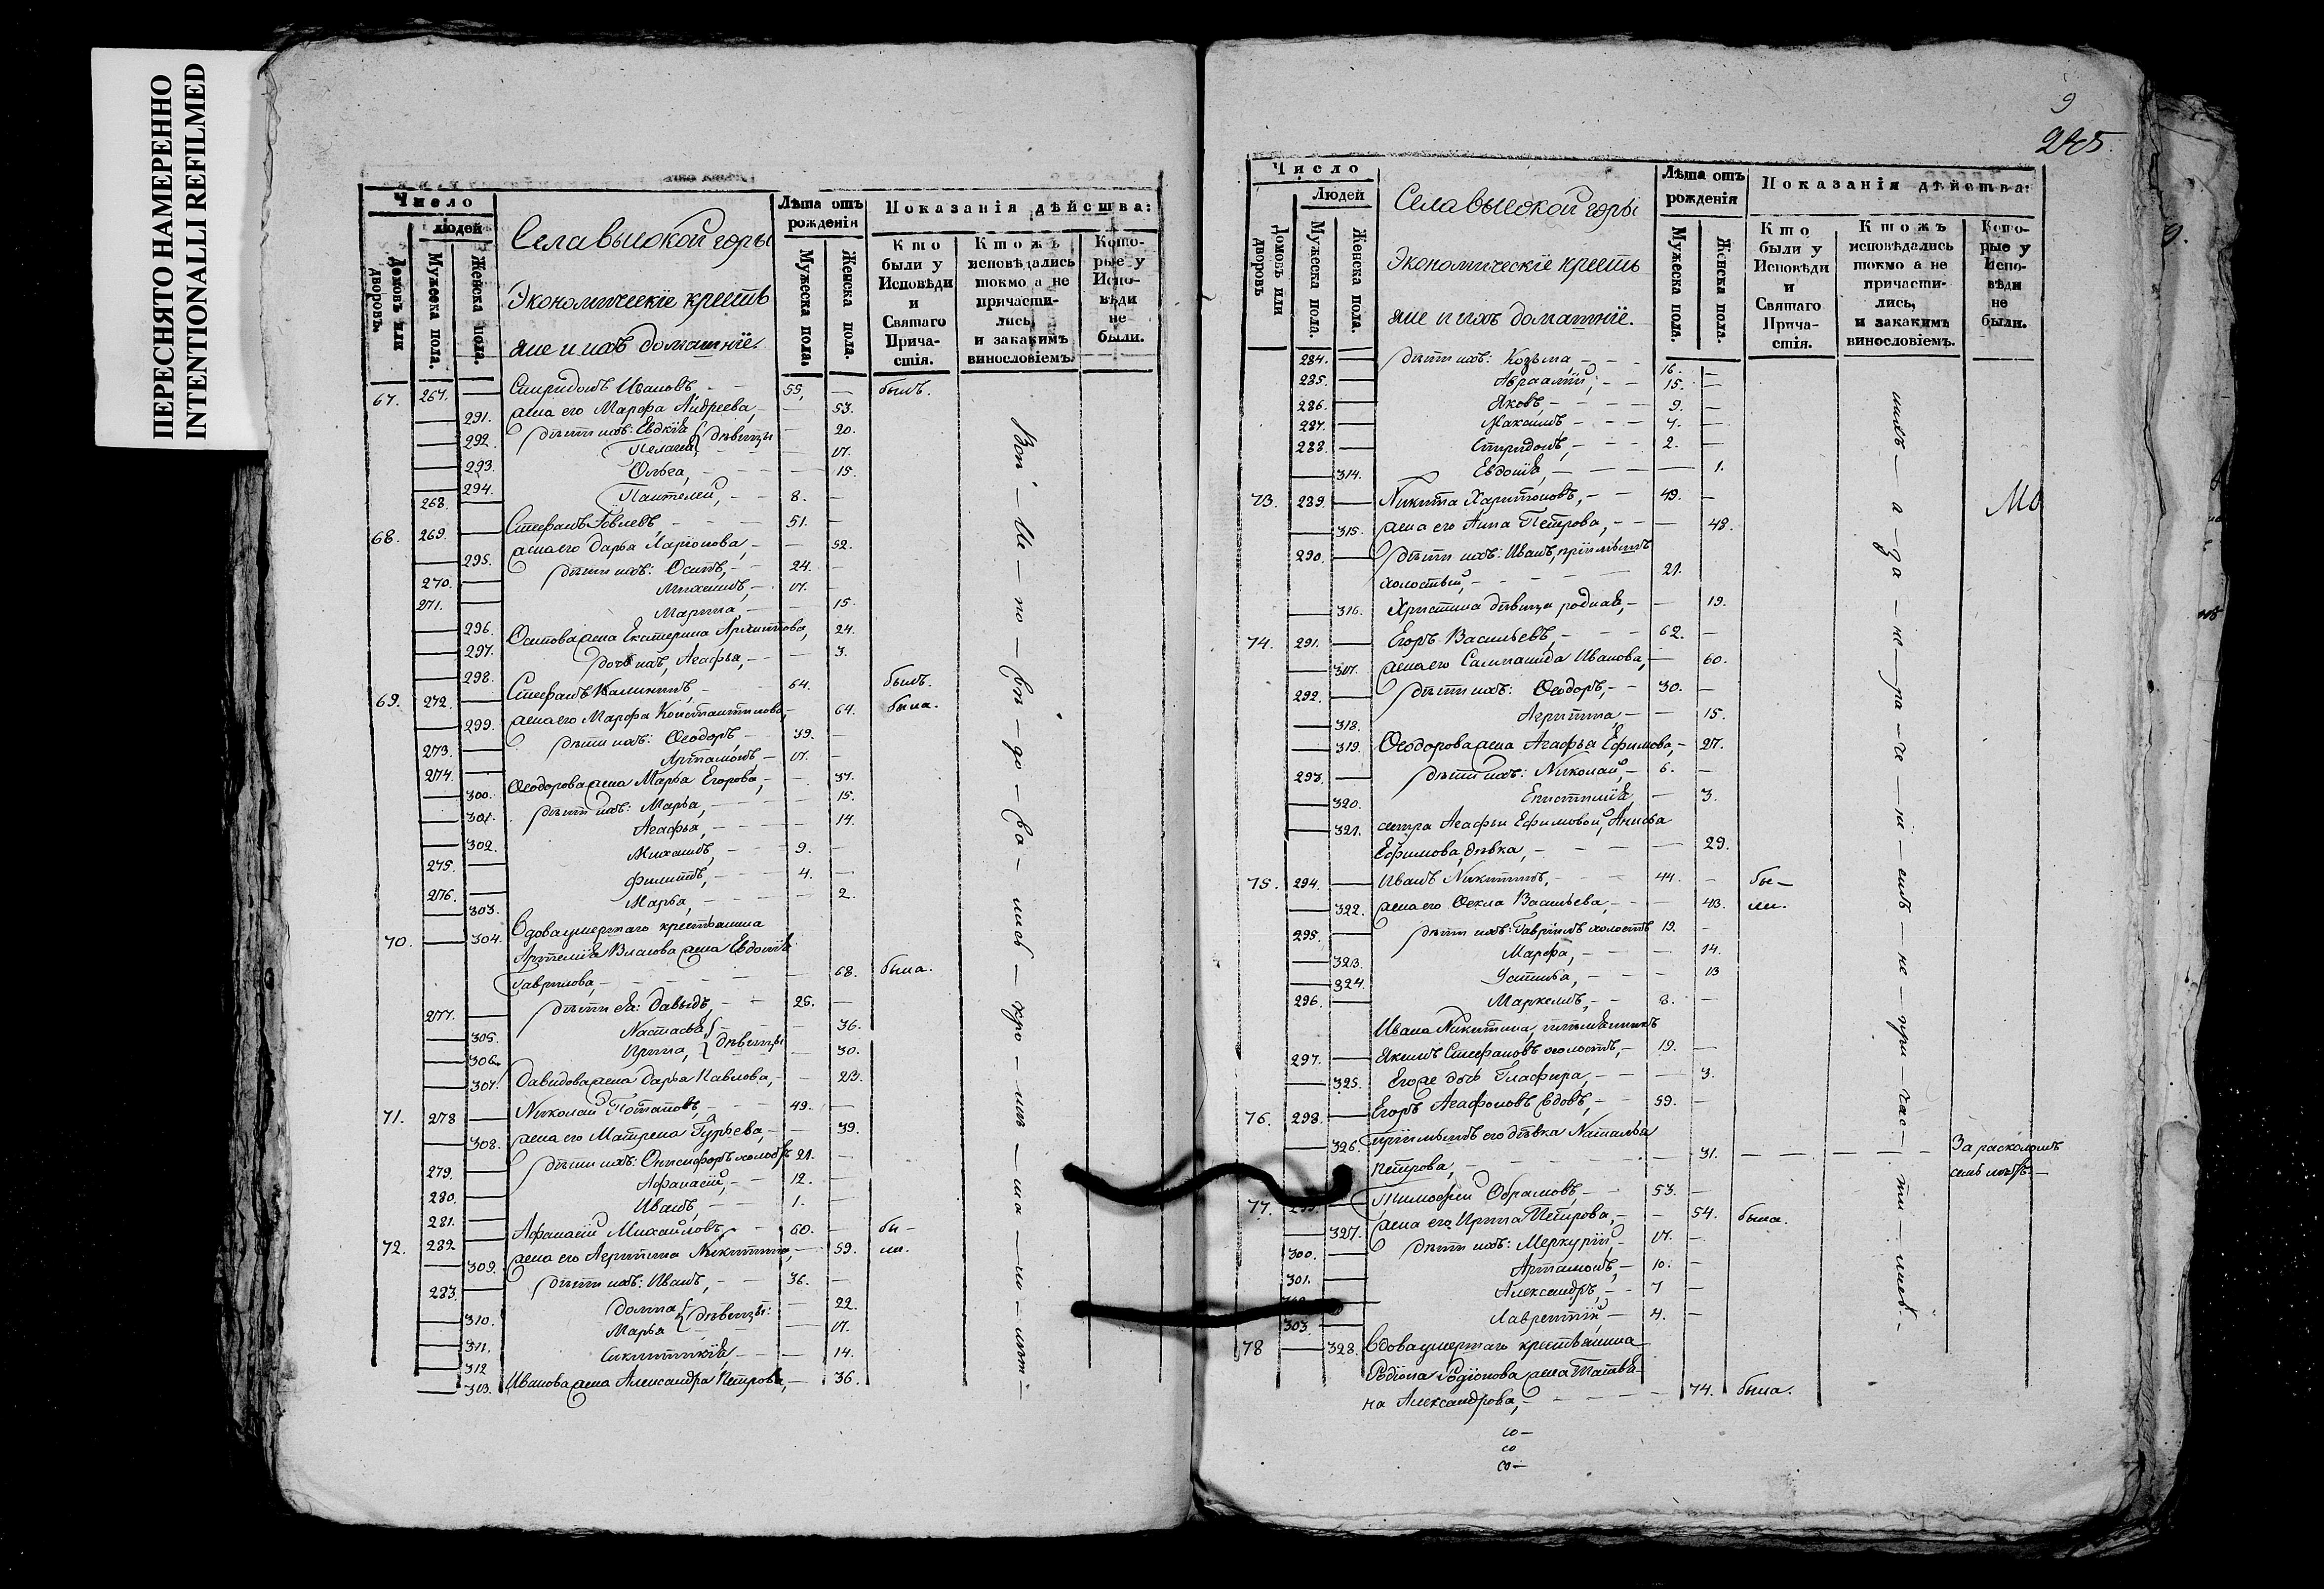 ПЕРЕСНЯТО НАМЕРЕННО
INTENTIONALLI REFILMED
Число
людей
Домовъ или дворовъ.
Мужеска пола.
Женска пола.
Села высокой горы
Экономическіе крестья
яне и ихъ домашніе.
Лѣта отъ рожденія
Мужеска пола.
Женска пола.
Показанія дѣйства:
Кто были у Исповѣди и Святаго Прича-стія.
Кто жъ исповѣдались токмо а не причасти-лись, и закакимъ винословіемъ.
Кото-рые у Испо-вѣди не были.
67. 267. Спиридонъ Ивановъ, 55, былъ.
291. жена его Марфа Андреева, 53.
292. дѣти ихъ: Евдкія } дѣвицы 20.
293. Пелагея 17.
294. Ольга, 15.
268. Пантелей, 8.
68. 269. Стефанъ 51.
295. жена его Дарья Ларіонова, 52.
270. дѣти ихъ: Осипъ, 24.
271. Михаилъ, 17.
296. Марина, 15.
297. Осипова жена Екатерина 24.
298. дочь ихъ, Агафья, 3.
69. 272. Стефанъ Калининъ, 64. былъ.
299. жена его Марфа Константинова, 64. была.
273. дѣти ихъ: Ѳеодоръ 39.
274. Артамонъ, 17.
300. Ѳеодорова жена Марья Егорова, 37.
301. дѣти ихъ: Марья, 15.
302. Агафья, 14.
275. Михаилъ, 9.
276. Филиппъ, 4.
303. Марья, 2.
70. 304. вдова умершаго крестьянина
Артемія Власова жена Евдокія
Гаврилова, 68. была.
277. дѣти ея: Давыдъ, 25.
305. Настасья } дѣвицы 36.
306. Ирина, 30.
307. Давидова жена Дарья Павлова, 23.
71. 278 Николай Потаповъ, 49.
308. жена его Матрена Гурьева, 39.
279. дѣти ихъ: Онисифоръ холостъ 21.
280. Афанасій, 12.
281. Иванъ, 1.
72. 282 Афанасій Михайловъ, 60. бы-
309. жена его Агрипина Никитина, 59. ли.
283. дѣти ихъ: Иванъ, 36.
310. Домна } дѣвицы: 22.
311. Марья 17.
312 14.
313. Иванова жена Александра Петрова, 36.
9
245
Число
Людей
Домовъ или дворовъ
Мужеска пола.
Женска пола.
Села высокой горы
Экономическіе кресть
яне и ихъ домашніе.
Лѣта отъ рожденія
Мужеска пола.
Женска пола.
Показанія дѣйства:
Кто были у Исповѣди и Святаго Прича-стія.
Кто жъ исповѣдались токмо а не причасти-лись, и закакимъ винословіемъ.
Кото-рые у Испо-вѣди не были.
284. дѣти ихъ: Козьма 16.
285. Авраамій, 15.
286. Яковъ, 9.
287. Максимъ 4.
288. Спиридонъ, 2.
314. Евдокія, 1.
73. 289. Никита Харитоновъ, 49.
315. жена его Анна Петрова, 48.
290. дѣти ихъ: Иванъ, пріимышъ
холостый, 21.
316. Христина дѣвица родная, 19.
74. 291. Егоръ Васильевъ, 62.
317. жена его Саломанида Иванова, 60.
292. дѣти ихъ: Ѳеодоръ, 30.
318. Агрипина, 15.
319. Ѳеодорова жена Агафья Ефимова, 27.
293. дѣти ихъ: Николай, 6.
320. 3.
321. сестра Агафьи Ефимовой, Анисья
Ефимова, дѣвка, 29.
75. 294. Иванъ Никитинъ, 44. бы-
322. жена его Ѳекла Васильева, 43. ли.
295. дѣти ихъ: Гавріилъ холостъ 19.
323. Марфа, 14.
324. Устинья, 13
296. Маркелъ, 8.
Ивана Никитина, племянникъ
297. Якимъ Стефановъ холостъ, 19.
325. Его же дочь Глафира, 3.
76. 298. Егоръ Агафоновъ вдовъ, 59.
326. пріимышъ его дѣвка Наталья
Петрова, 31. За расколомъ
семь лѣтъ.
77. Тимофей Обрамовъ, 53.
327. жена его Ирина Петрова, 54. была.
300. дѣти ихъ: Меркурій, 17.
301. Артамонъ, 10.
Александръ, 7
303. Лаврентій, 4.
78 328. вдова умершаго крестьянина
Родіона Родіонова жена Татья-
на Александрова, 74. была.